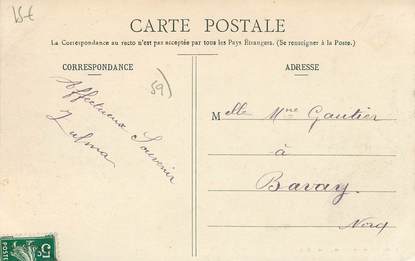 15€
CARTE POSTALE
La Correspondance au recto n'est pas acceptée par tous les Pays Étrangers. (Se renseigner à la Poste.)
CORRESPONDANCE
59)
Affectueux Souvenir
Zulma
ADRESSE
Melle Mne Gautier
à
Bavay.
Nord
POSTES
5c